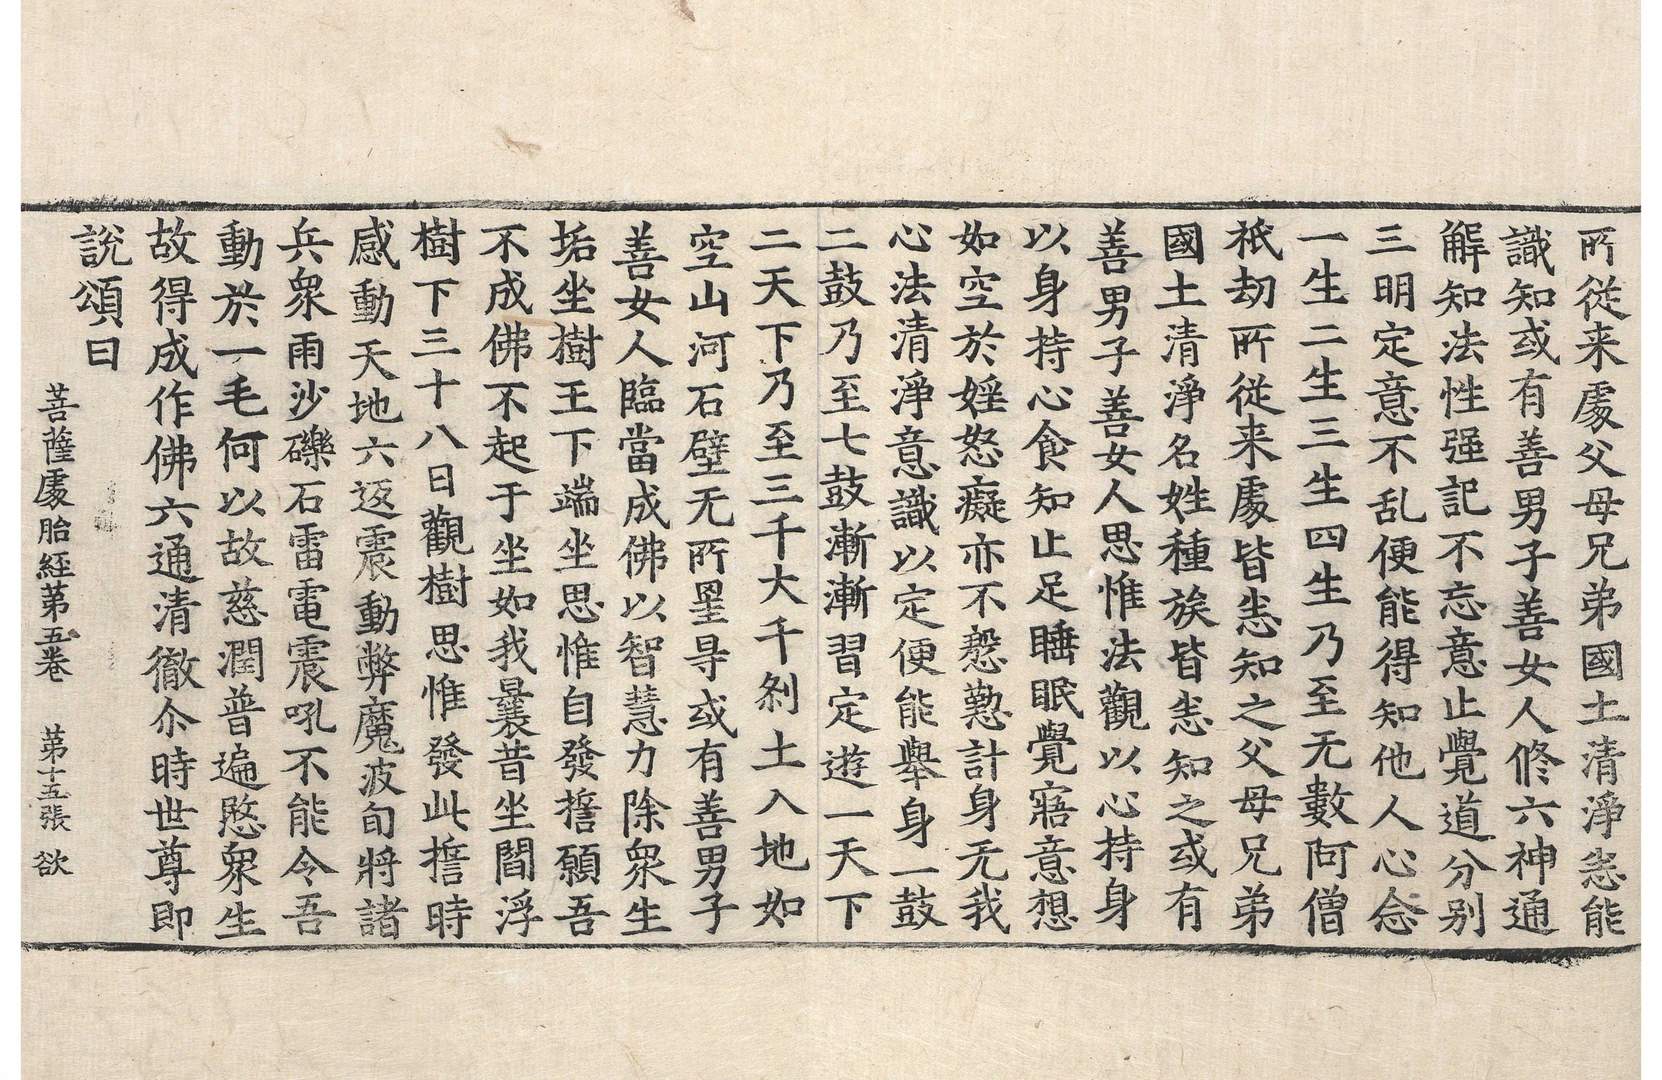 所從来處父母兄弟國土清淨悉能
識知或有善男子善女人修六神通
解知法性强記不忘意止覺道分别
三明定意不乱便能得知他人心念
一生二生三生四生乃至无數阿僧
祇劫所從来處皆悉知之父母兄弟
國土清淨名姓種族皆悉知之或有
善男子善女人思惟法觀以心持身
以身持心食知止足睡眠覺寤意想
如空於婬怒癡亦不慇懃計身无我
心法清淨意識以定便能舉身一鼓
二鼓乃至七鼓漸漸習定遊一天下
二天下乃至三千大千刹土入地如
空山河石壁无所罣㝵或有善男子
善女人臨當成佛以智慧力除衆生
垢坐樹王下端坐思惟自發誓願吾
不成佛不起于坐如我曩昔坐閻浮
樹下三十八日觀樹思惟發此誓時
感動天地六返震動弊魔波旬將諸
兵衆雨沙礫石雷電震吼不能令吾
動於一毛何以故慈潤普遍愍衆生
故得成作佛六通清徹尒時世尊即
說頌曰
菩薩處胎經第五卷 第十五張 欲